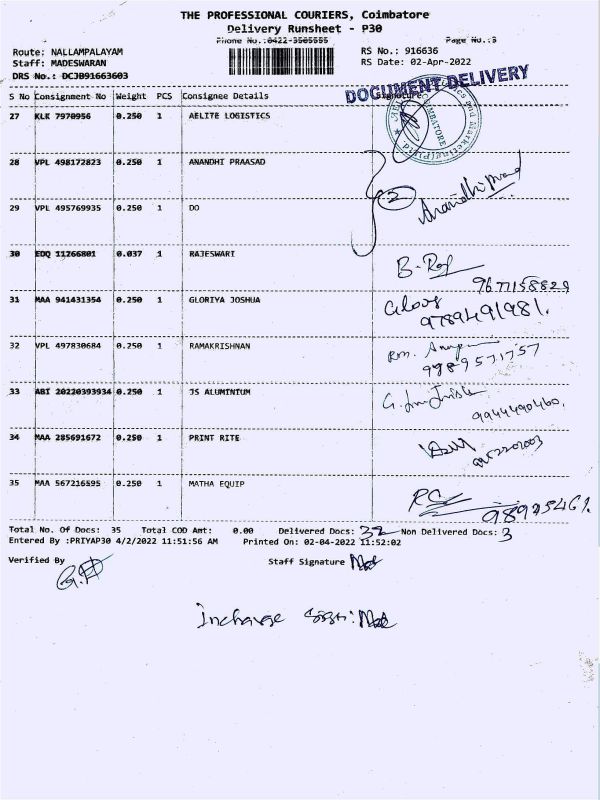 THE PROFESSIONAL COURIERS, Coimbatore
Delivery Runsheet - P30
Phone No.:0422-3505555 Page No.:3
Route: NALLAMPALAYAM RS No.: 916636
Staff: MADESWARAN RS Date: 02-Apr-2022
DRS No.: DCJB91663603
DOCUMENT DELIVERY
S No Consignment No Weight PCS Consignee Details Signature
27 KLK 7970956 0.250 1 AELITE LOGISTICS
COIMBATORE
28 VPL 498172823 0.250 1 ANANDHI PRAASAD
2
29 VPL 495769935 0.250 1 DO
30 EDQ 11266801 0.037 1 RAJESWARI B. Raj
9677158829
31 MAA 941431354 0.250 1 GLORIYA JOSHUA
9789491981.
32 VPL 497830684 0.250 1 RAMAKRISHNAN
9989571757
33 ABT 20220393934 0.250 1 JS ALUMINIUM
9944490460.
34 MAA 285691672 0.250 1 PRINT RITE
35 MAA 567216595 0.250 1 MATHA EQUIP
Total No. Of Docs: 35 Total COD Amt: 0.00 Delivered Docs: 32 Non Delivered Docs: 3
Entered By :PRIYAP30 4/2/2022 11:51:56 AM Printed On: 02-04-2022 11:52:02
Verified By Staff Signature
Incharge